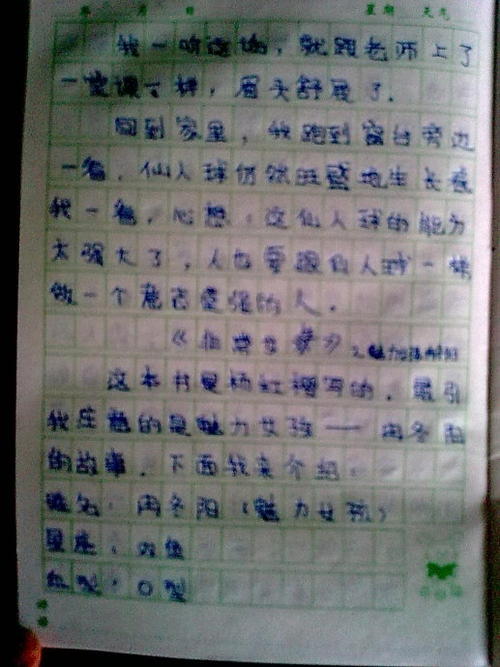 年 月 日 星期 天气
我一听这话，就跟老师上了
一堂课一样，眉头舒展了．
回到家里，我跑到窗台旁边
一看，仙人球仍然旺盛地生长着
我一看，心想，这仙人球的能力
太强大了，人也要跟仙人球一样
做一个意志坚强的人．
《 女 》 2.魅力
这本书是杨红樱写的．最引
我 的是魅力女孩——冉冬阳
的故事．下面我来介绍：
姓名：冉冬阳（魅力女孩）
星座：双鱼
血型：O型